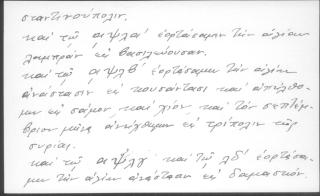 σταντινούπολιν.
καὶ τῶ αψλα΄ ἑορτάσαμεν τὴν ἁγίαν
λαμπρὰν εἰς βασιλεύουσαν.
καὶ τῶ αψλβ΄ ἑορτάσαμεν τὴν ἁγίαν
ἀνάστασιν εἰς κουσάντασι καὶ ἀπήλθο-
μεν εἰς σάμον καὶ χίον καὶ τὸν σεπτέμ-
βριον μῆνα ἀνήχθημεν εἰς τρίπολιν τῆς
συρίας.
καὶ τῶ αψλγ΄ καὶ τῶ λδ΄ ἑορτάσα-
μεν τὴν ἁγίαν ἀνάστασιν εἰς δαμασκόν.